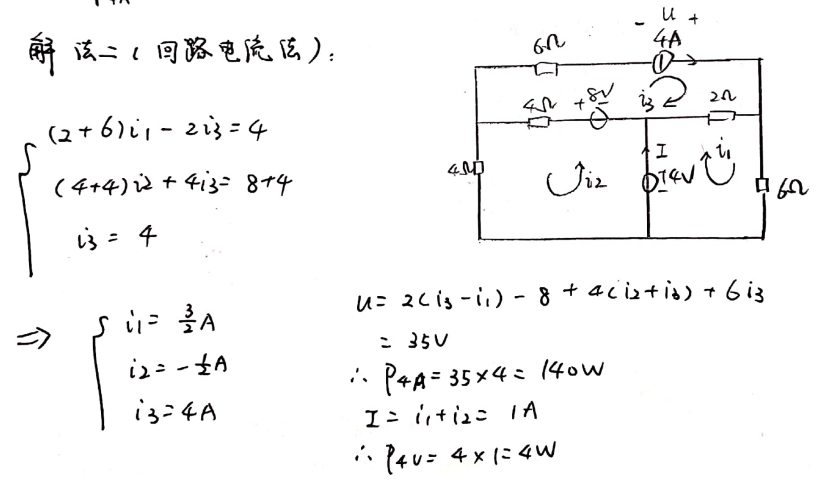 解法二(回路电流法):
(2+6)i₁ - 2i₃ = 4
(4+4)i₂ + 4i₃ = 8+4
i₃ = 4
⇒ i₁ = 3/2 A
i₂ = -1/2 A
i₃ = 4A
- u +
4A
6Ω
4Ω + 8V - i₃ 2Ω
4Ω i₂ I + 4V - i₁ 6Ω
u = 2(i₃-i₁) - 8 + 4(i₂+i₃) + 6i₃
= 35V
∴ P4A = 35×4 = 140W
I = i₁+i₂ = 1A
∴ P4V = 4×1 = 4W